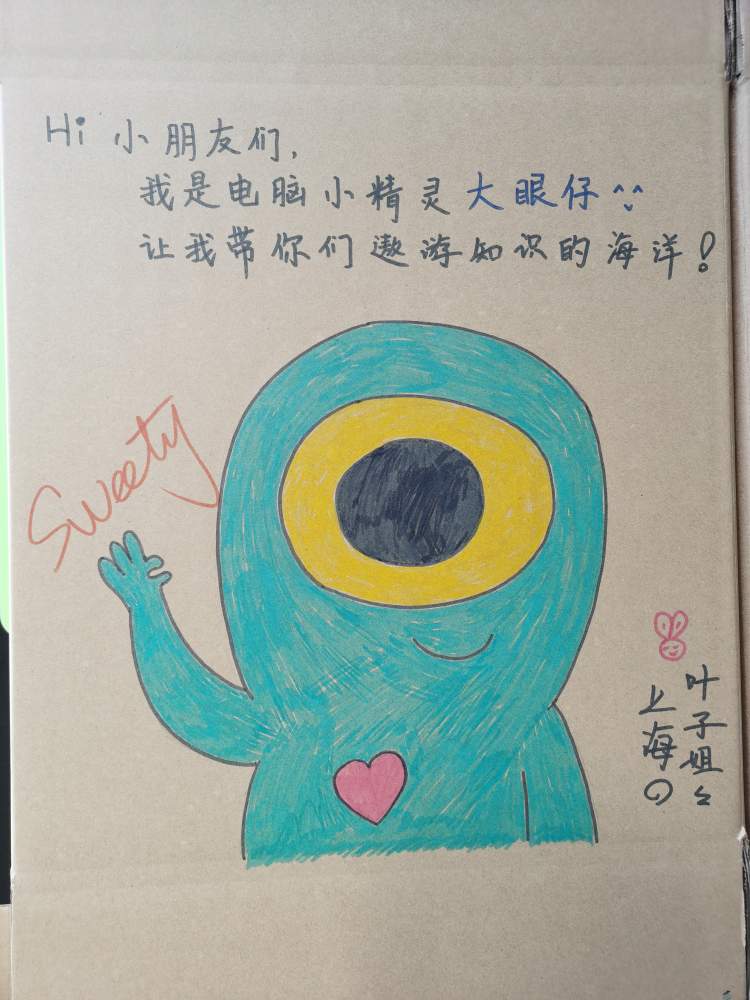 Hi 小朋友们,
我是电脑小精灵大眼仔^^
让我带你们遨游知识的海洋!
Sweety
叶子姐々
上海の